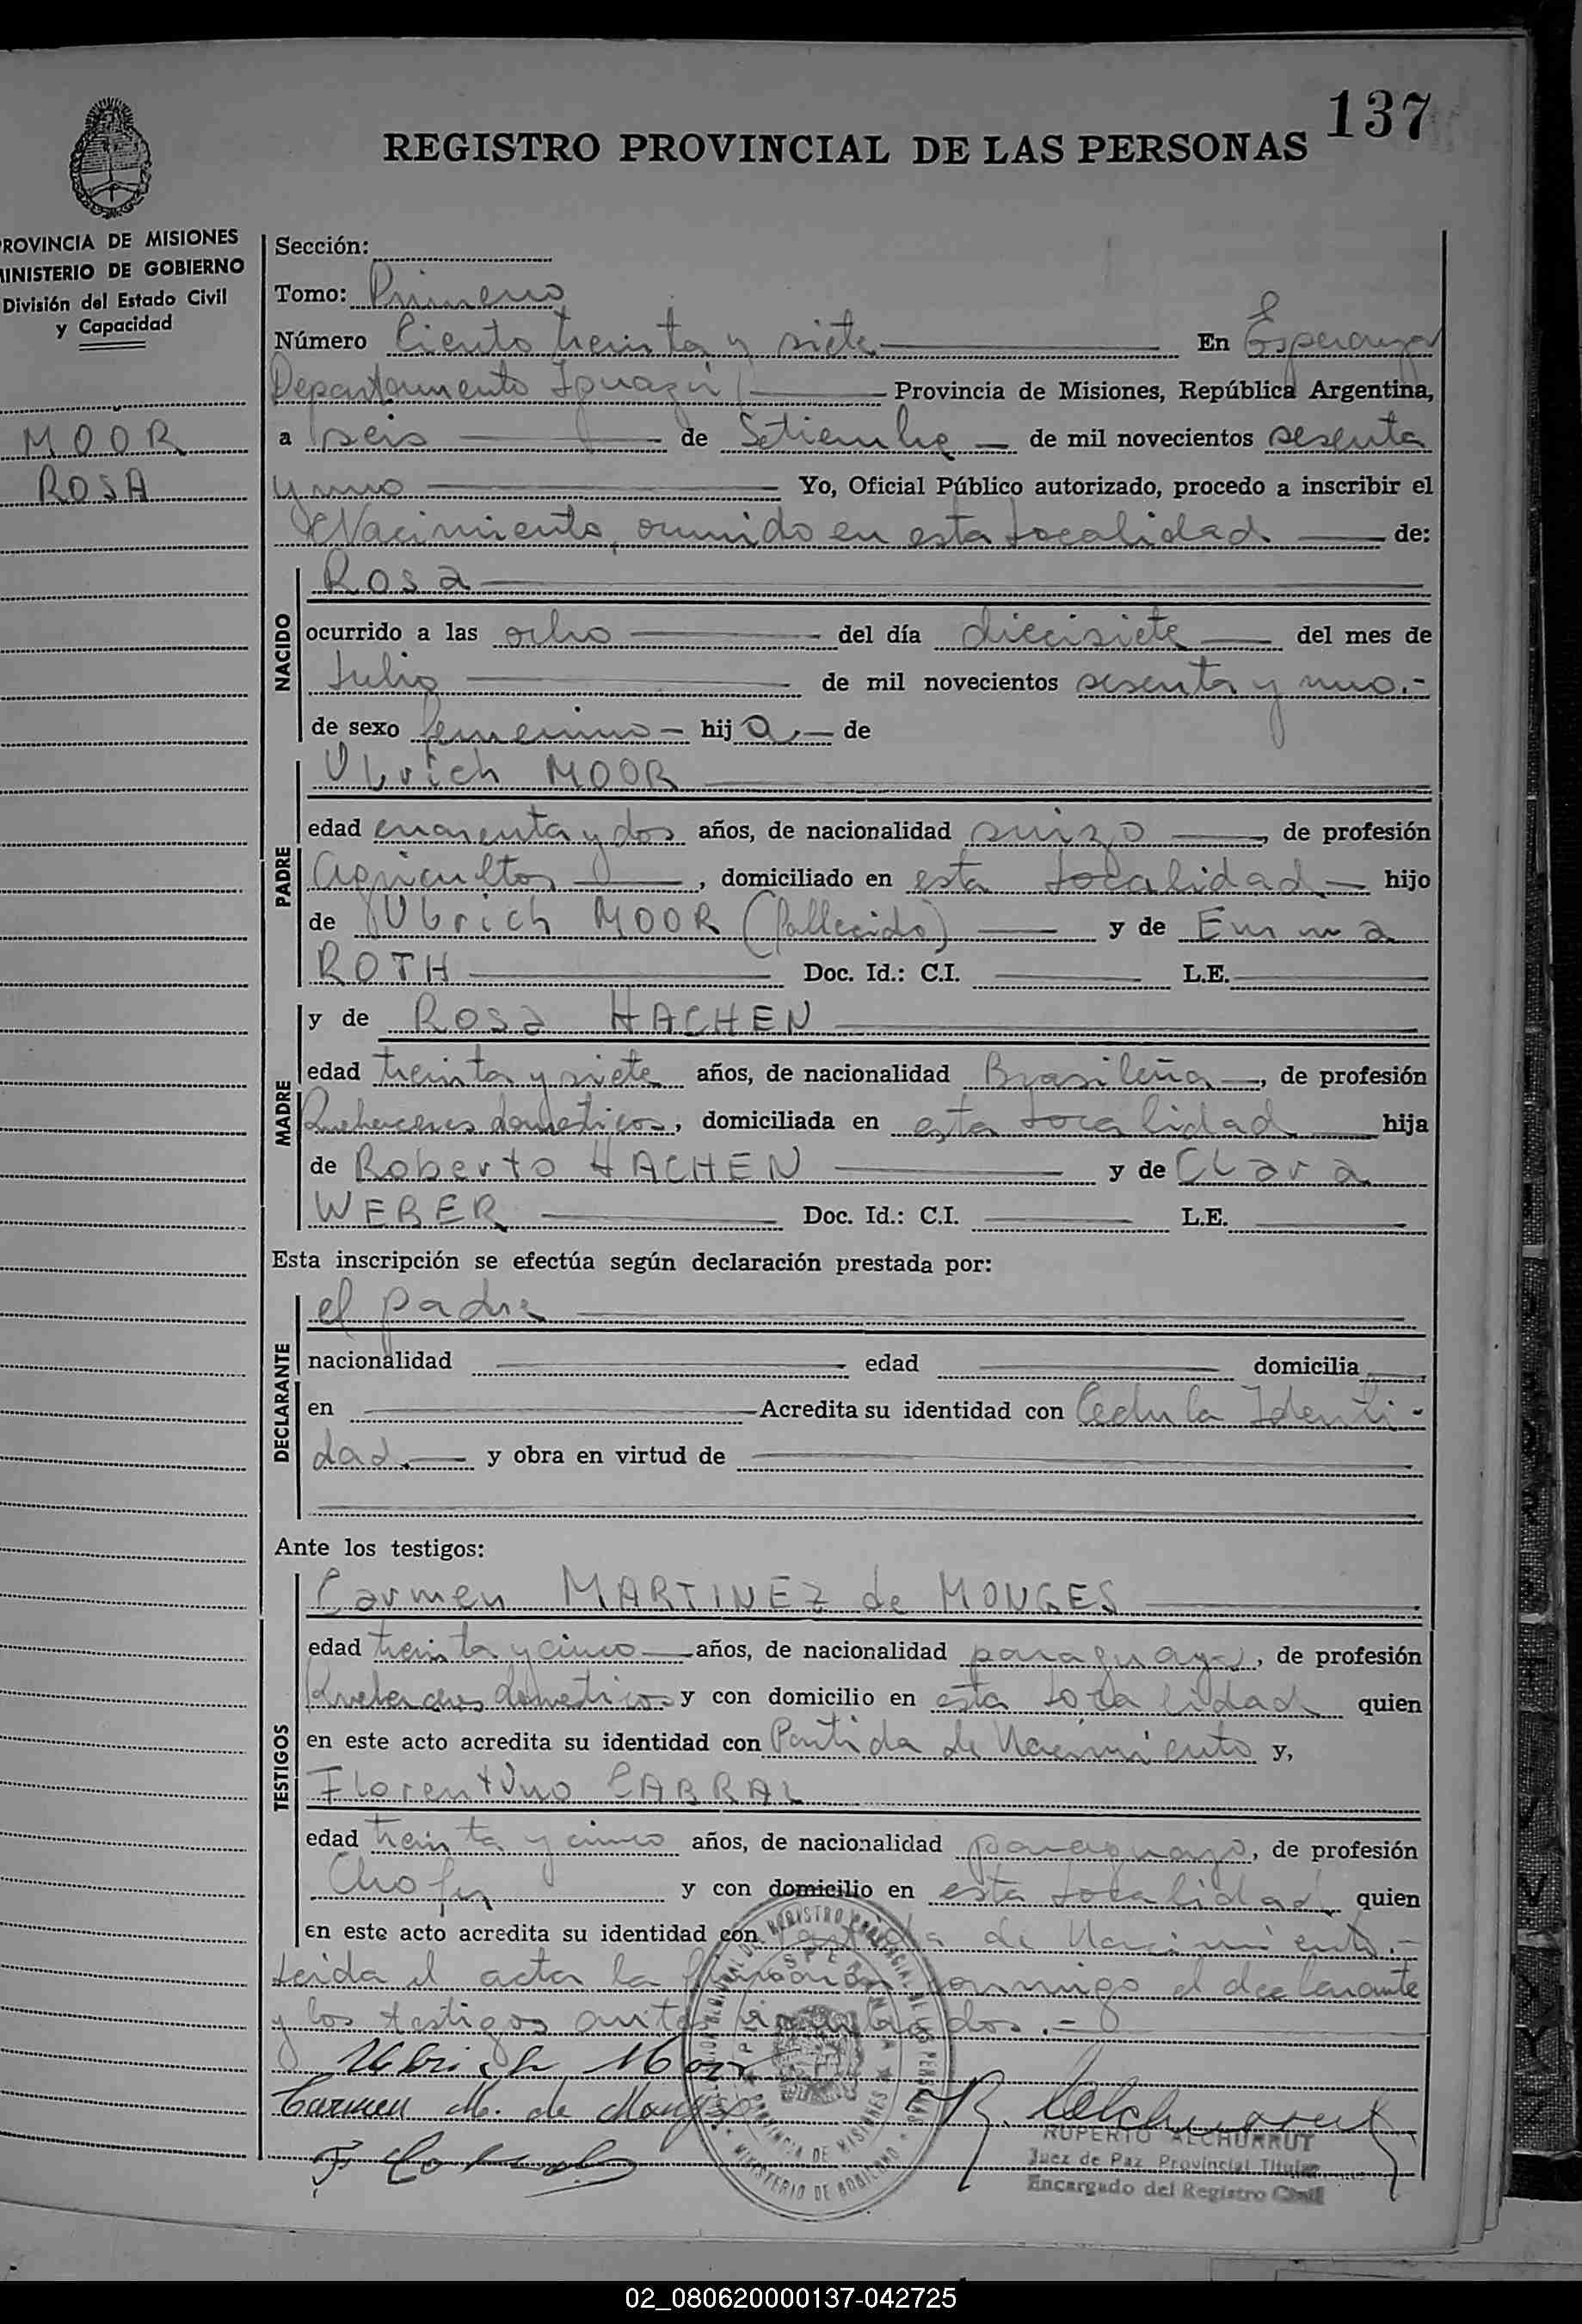 137
REGISTRO PROVINCIAL DE LAS PERSONAS
PROVINCIA DE MISIONES
MINISTERIO DE GOBIERNO
División del Estado Civil
y Capacidad
MOOR
ROSA
Sección:
Tomo: Primero
Número Ciento treinta y siete En Esperanza
Departamento Iguazú Provincia de Misiones, República Argentina,
a seis de Setiembre de mil novecientos sesenta
y uno Yo, Oficial Público autorizado, procedo a inscribir el
Nacimiento, ocurrido en esta Localidad de:
NACIDO
Rosa
ocurrido a las ocho del día diecisiete del mes de
Julio de mil novecientos sesenta y uno.-
de sexo femenino - hija de
PADRE
Ulrich MOOR
edad cuarenta y dos años, de nacionalidad suizo, de profesión
Agricultor, domiciliado en esta Localidad hijo
de Ulrich MOOR (fallecido) y de Emma
ROTH Doc. Id.: C.I. L.E.
MADRE
y de Rosa HACHEN
edad treinta y siete años, de nacionalidad Brasileña, de profesión
Quehaceres domesticos, domiciliada en esta Localidad hija
de Roberto HACHEN y de Clara
WEBER Doc. Id.: C.I. L.E.
Esta inscripción se efectúa según declaración prestada por:
DECLARANTE
el padre
nacionalidad edad domicilia
en Acredita su identidad con Cedula Identi-
dad. y obra en virtud de
Ante los testigos:
TESTIGOS
Carmen MARTINEZ de MONGES
edad treinta y cinco años, de nacionalidad paraguaya, de profesión
Quehaceres domesticos y con domicilio en esta Localidad quien
en este acto acredita su identidad con Partida de Nacimiento y,
Florentino CABRAL
edad treinta y cinco años, de nacionalidad paraguayo, de profesión
Chofer y con domicilio en esta Localidad quien
en este acto acredita su identidad con Partida de Nacimiento.-
Leida el acta la firman conmigo el declarante
y los testigos antes nombrados.-
Ulrich Moor
Carmen M. de Monges
F. Cabral
R. Alchurrut
RUPERTO ALCHURRUT
Juez de Paz Provincial Titular
Encargado del Registro Civil
PROVINCIA DE MISIONES
MINISTERIO DE GOBIERNO
02_080620000137-042725